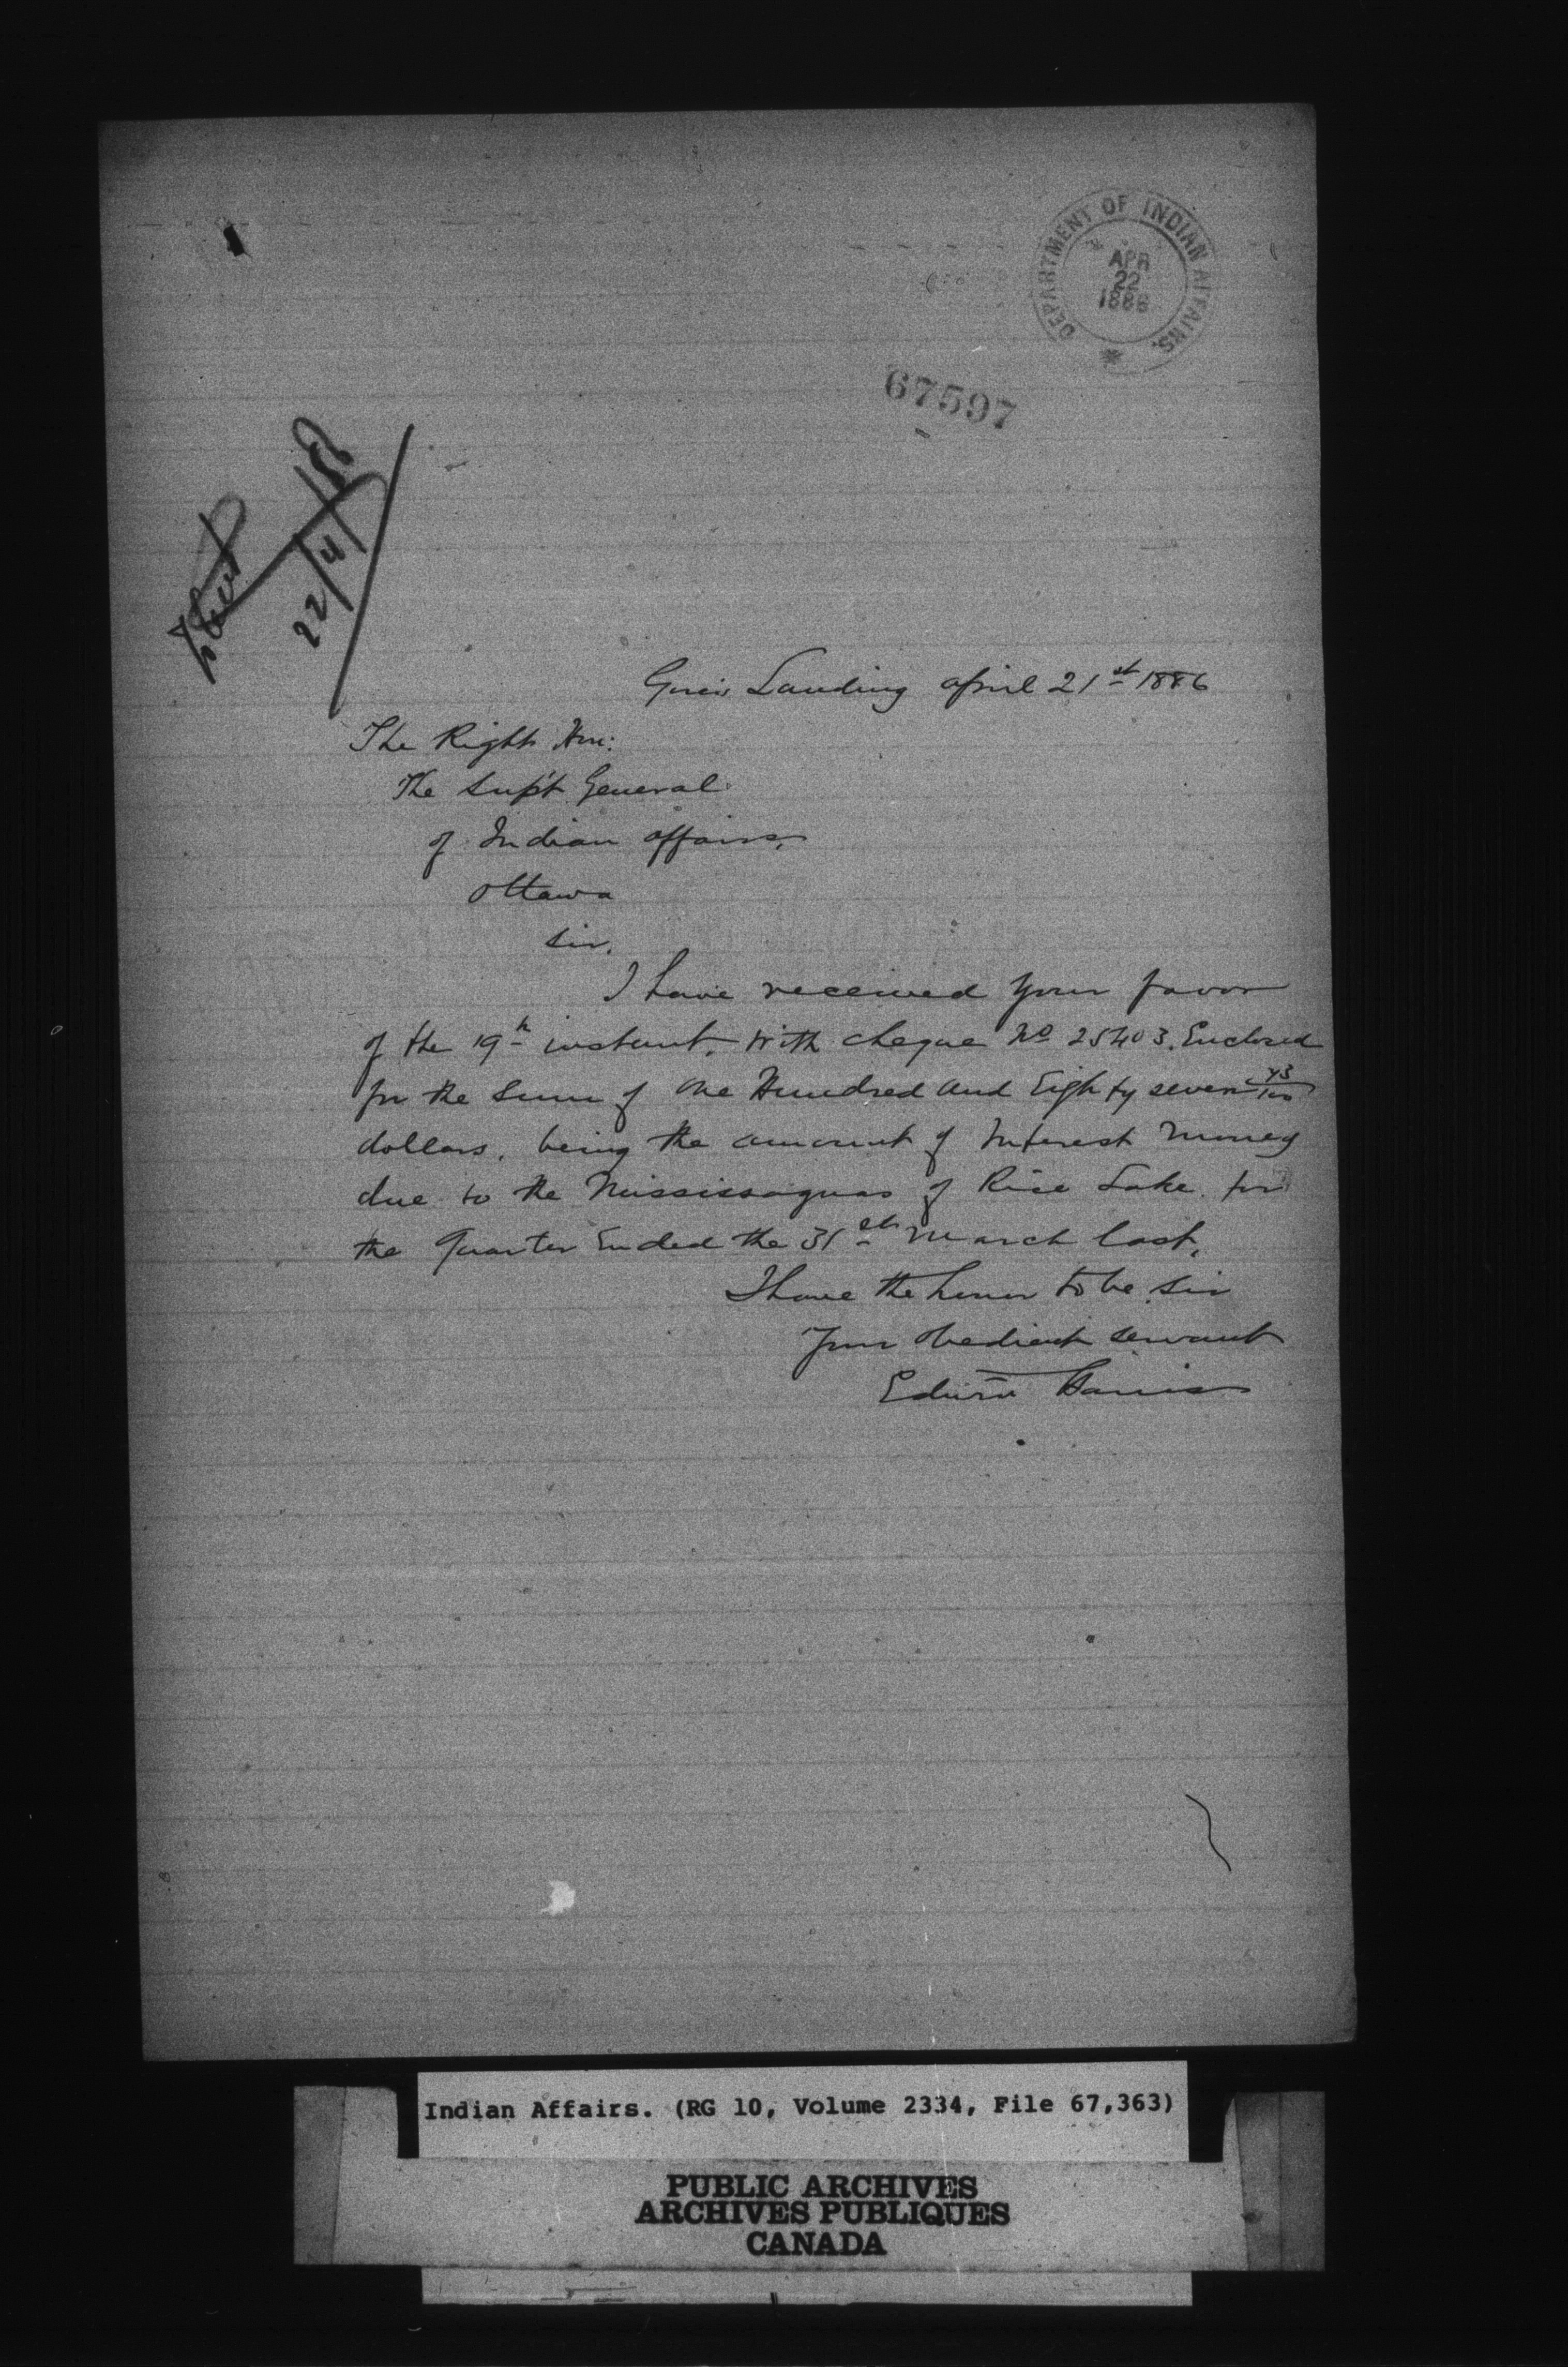 DEPARTMENT OF INDIAN AFFAIRS.
APR
22
1886
67597
22/4/86
Landing april 21st 1886
The Right Hon:
The Supt General
of Indian affairs,
Ottawa
Sir,
I have received your favor
of the 19th instant, with cheque No 25403. Enclosed
for the Sum of One Hundred and Eighty seven 43/100
dollars, being the amount of Interest money
due to the Mississaguas of Rice Lake for
the Quarter Ended the 31st March last,
I have the honor to be Sir
Your obedient servant
Edwin Harris
Indian Affairs. (RG 10, Volume 2334, File 67,363)
PUBLIC ARCHIVES
ARCHIVES PUBLIQUES
CANADA